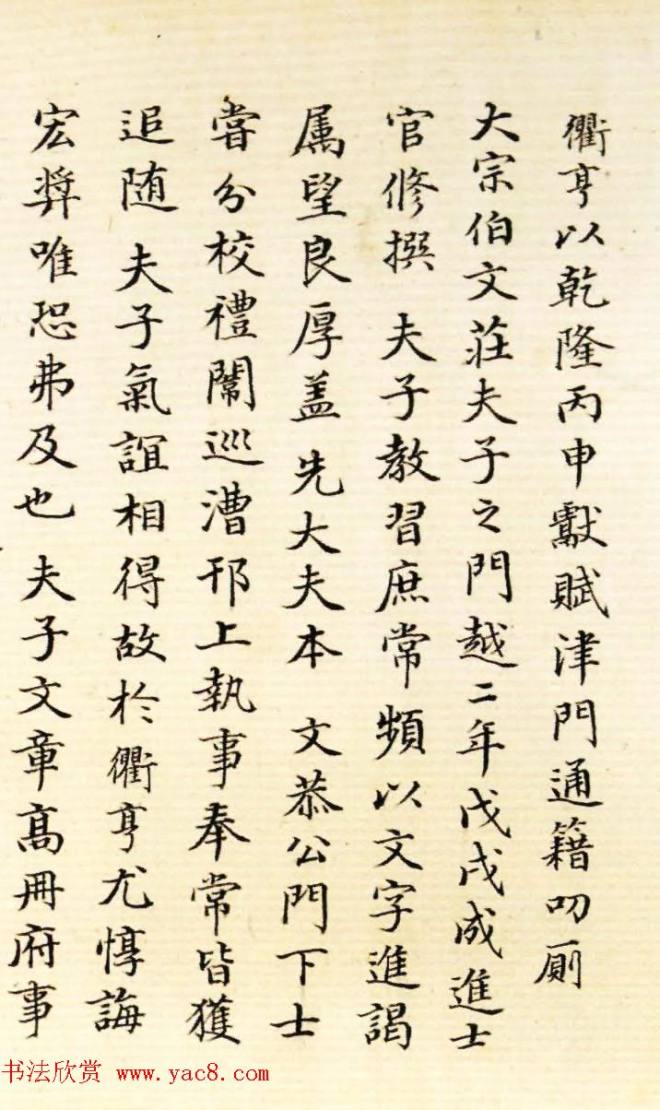 衢亨以乾隆丙申獻賦津門通籍叨厠
大宗伯文莊夫子之門越二年戊戌成進士
官修撰 夫子教習庶常頻以文字進謁
属望良厚盖 先大夫本 文恭公門下士
甞分校禮闈巡漕邗上執事奉常皆獲
追随 夫子氣誼相得故於衢亨尤惇誨
宏奬唯恐弗及也 夫子文章高冊府事
书法欣赏 www.yac8.com